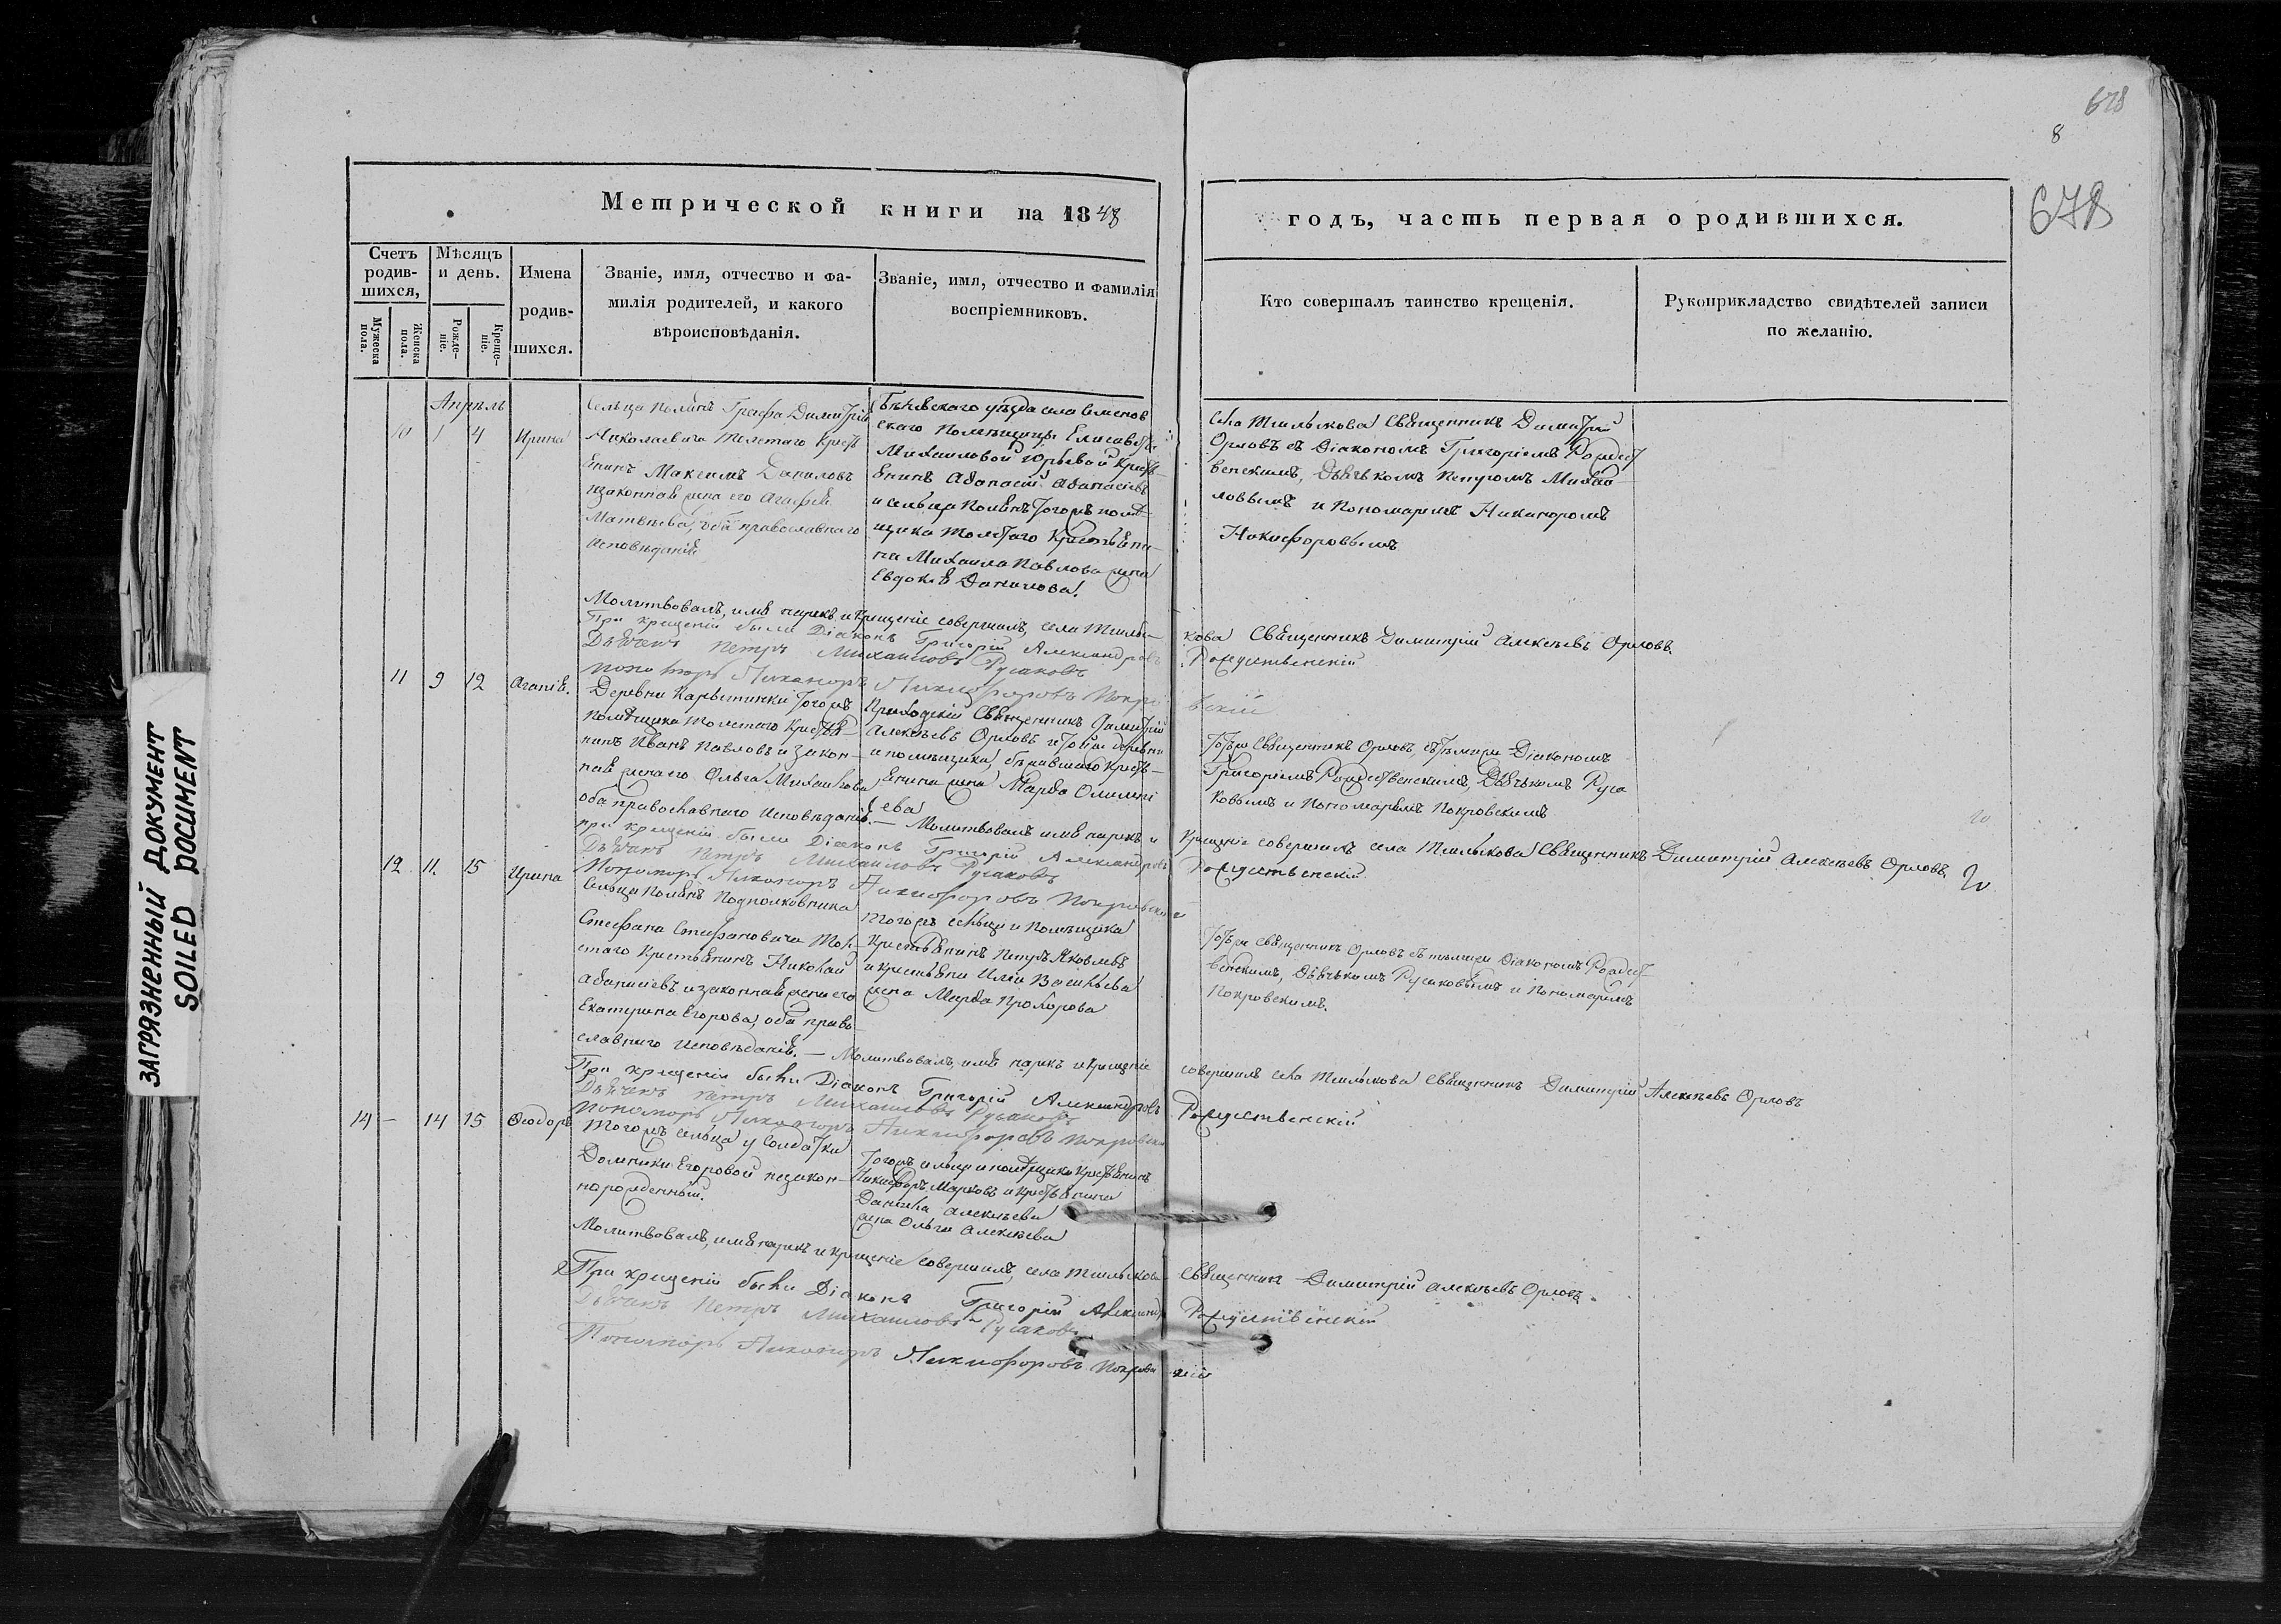 678
8
678
Метрической книги на 1848
годъ, часть первая о родившихся.
Счетъ родив-шихся,
Мужеска пола.
Женска пола.
Мѣсяцъ и день.
Рожде-ніе.
Креще-ніе.
Имена
родив-
шихся.
Званіе, имя, отчество и фа-
милія родителей, и какого
вѣроисповѣданія.
Званіе, имя, отчество и фамилія
воспріемниковъ.
Кто совершалъ таинство крещенія.
Рукоприкладство свидѣтелей записи
по желанію.
Апрѣль
10 1 4 Ирина
Сельца Полянъ Графа Димитрія
Николаевича Толстаго Кресть
янинъ Максимъ Даниловъ
изаконная жена его Агафія
Матвѣева, оба православнаго
исповѣданія
Бѣлевскаго уѣзда села Семенов
скаго Помѣщицы Елисаветы
Михаиловой Юрьевой Кресть-
янинъ Аѳанасій Аѳанасіевъ
и сельца Полянъ тогожъ помѣ-
щика Толстаго Крестьяни-
на Михаила Павлова жена
Евдокія Данилова.
села Священникъ Димитрій
Орловъ съ Діакономъ Григоріемъ Рождест
венскимъ, Дьячькомъ Петромъ Михай
ловымъ и Пономаремъ Никаноромъ
Никифоровымъ
Молитвовалъ, имя нарекъ и Крещеніе совершилъ, села
Священникъ Димитрій Алексѣевъ Орловъ.
При крещеніи были Діаконъ Григорій Александровъ Рождественскій
Дьячекъ Петръ Михаиловъ Русаковъ
Пономарь Никаноръ Никифоровъ Покровскій
11 9 12 Агапія.
Деревни тогожъ
помѣщика Толстаго Крестья-
нинъ Иванъ Павловъ и закон-
ная жена его Ольга Михаилова
оба православнаго исповѣданія.
Приходскій Священникъ Димитрій
Алексѣевъ Орловъ и тойже деревни
и помѣщика, бывшаго Кресть-
янина жена Марѳа
ева
Тотъже Священникъ Орловъ, съ тѣмиже Діакономъ
Григоріемъ Рождественскимъ, Дьячькомъ Руса
ковымъ и Пономаремъ Покровскимъ
— Молитвовалъ имя нарекъ и
Крещеніе совершилъ села Священникъ Димитрій Алексѣевъ Орловъ.
при крещеніи были Діаконъ Григорій Александровъ Рождественскій
Дьячекъ Петръ Михаиловъ Русаковъ
Пономарь Никаноръ Никифоровъ Покровскій
12 11. 15 Ирина
Сельца Полянъ Подполковника
Стефана Стефановича Тол-
стаго Крестьянинъ Николай
Аѳанасіевъ и законная жена его
Екатерина Егорова, оба право-
славнаго исповѣданія.
Тогожъ сельца и помѣщика
Крестьянинъ Петръ Яковлевъ
и крестьянина Иліи Васильева
жена Марѳа Прохорова
Тотъже Священникъ Орловъ съ тѣмиже Діакономъ Рождест
венскимъ, Дьячькомъ Русаковымъ и Пономаремъ
Покровскимъ.
— Молитвовалъ, имя нарекъ и Крещеніе
совершилъ села Священникъ Димитрій Алексѣевъ Орловъ
При крещеніи были Діаконъ Григорій Александровъ Рождественскій
Дьячекъ Петръ Михаиловъ Русаковъ
Пономарь Никаноръ Никифоровъ Покровскій
14 — 14 15 Ѳеодоръ
Тогожъ сельца у Солдатки
Домники Егоровой незакон-
норожденный.
Тогожъ сельца и помѣщика Крестьянинъ
Никифоръ Марковъ и Крестьянина
Данила Алексѣева
жена Ольга Алексѣева
Молитвовалъ, имя нарекъ и крещеніе совершилъ, села
Священникъ Димитрій Алексѣевъ Орловъ.
При крещеніи были Діаконъ Григорій Александр Рождественскій
Дьячекъ Петръ Михаиловъ Русаковъ
Пономарь Никаноръ Никифоровъ Покровскій
ЗАГРЯЗНЕННЫЙ ДОКУМЕНТ
SOILED DOCUMENT